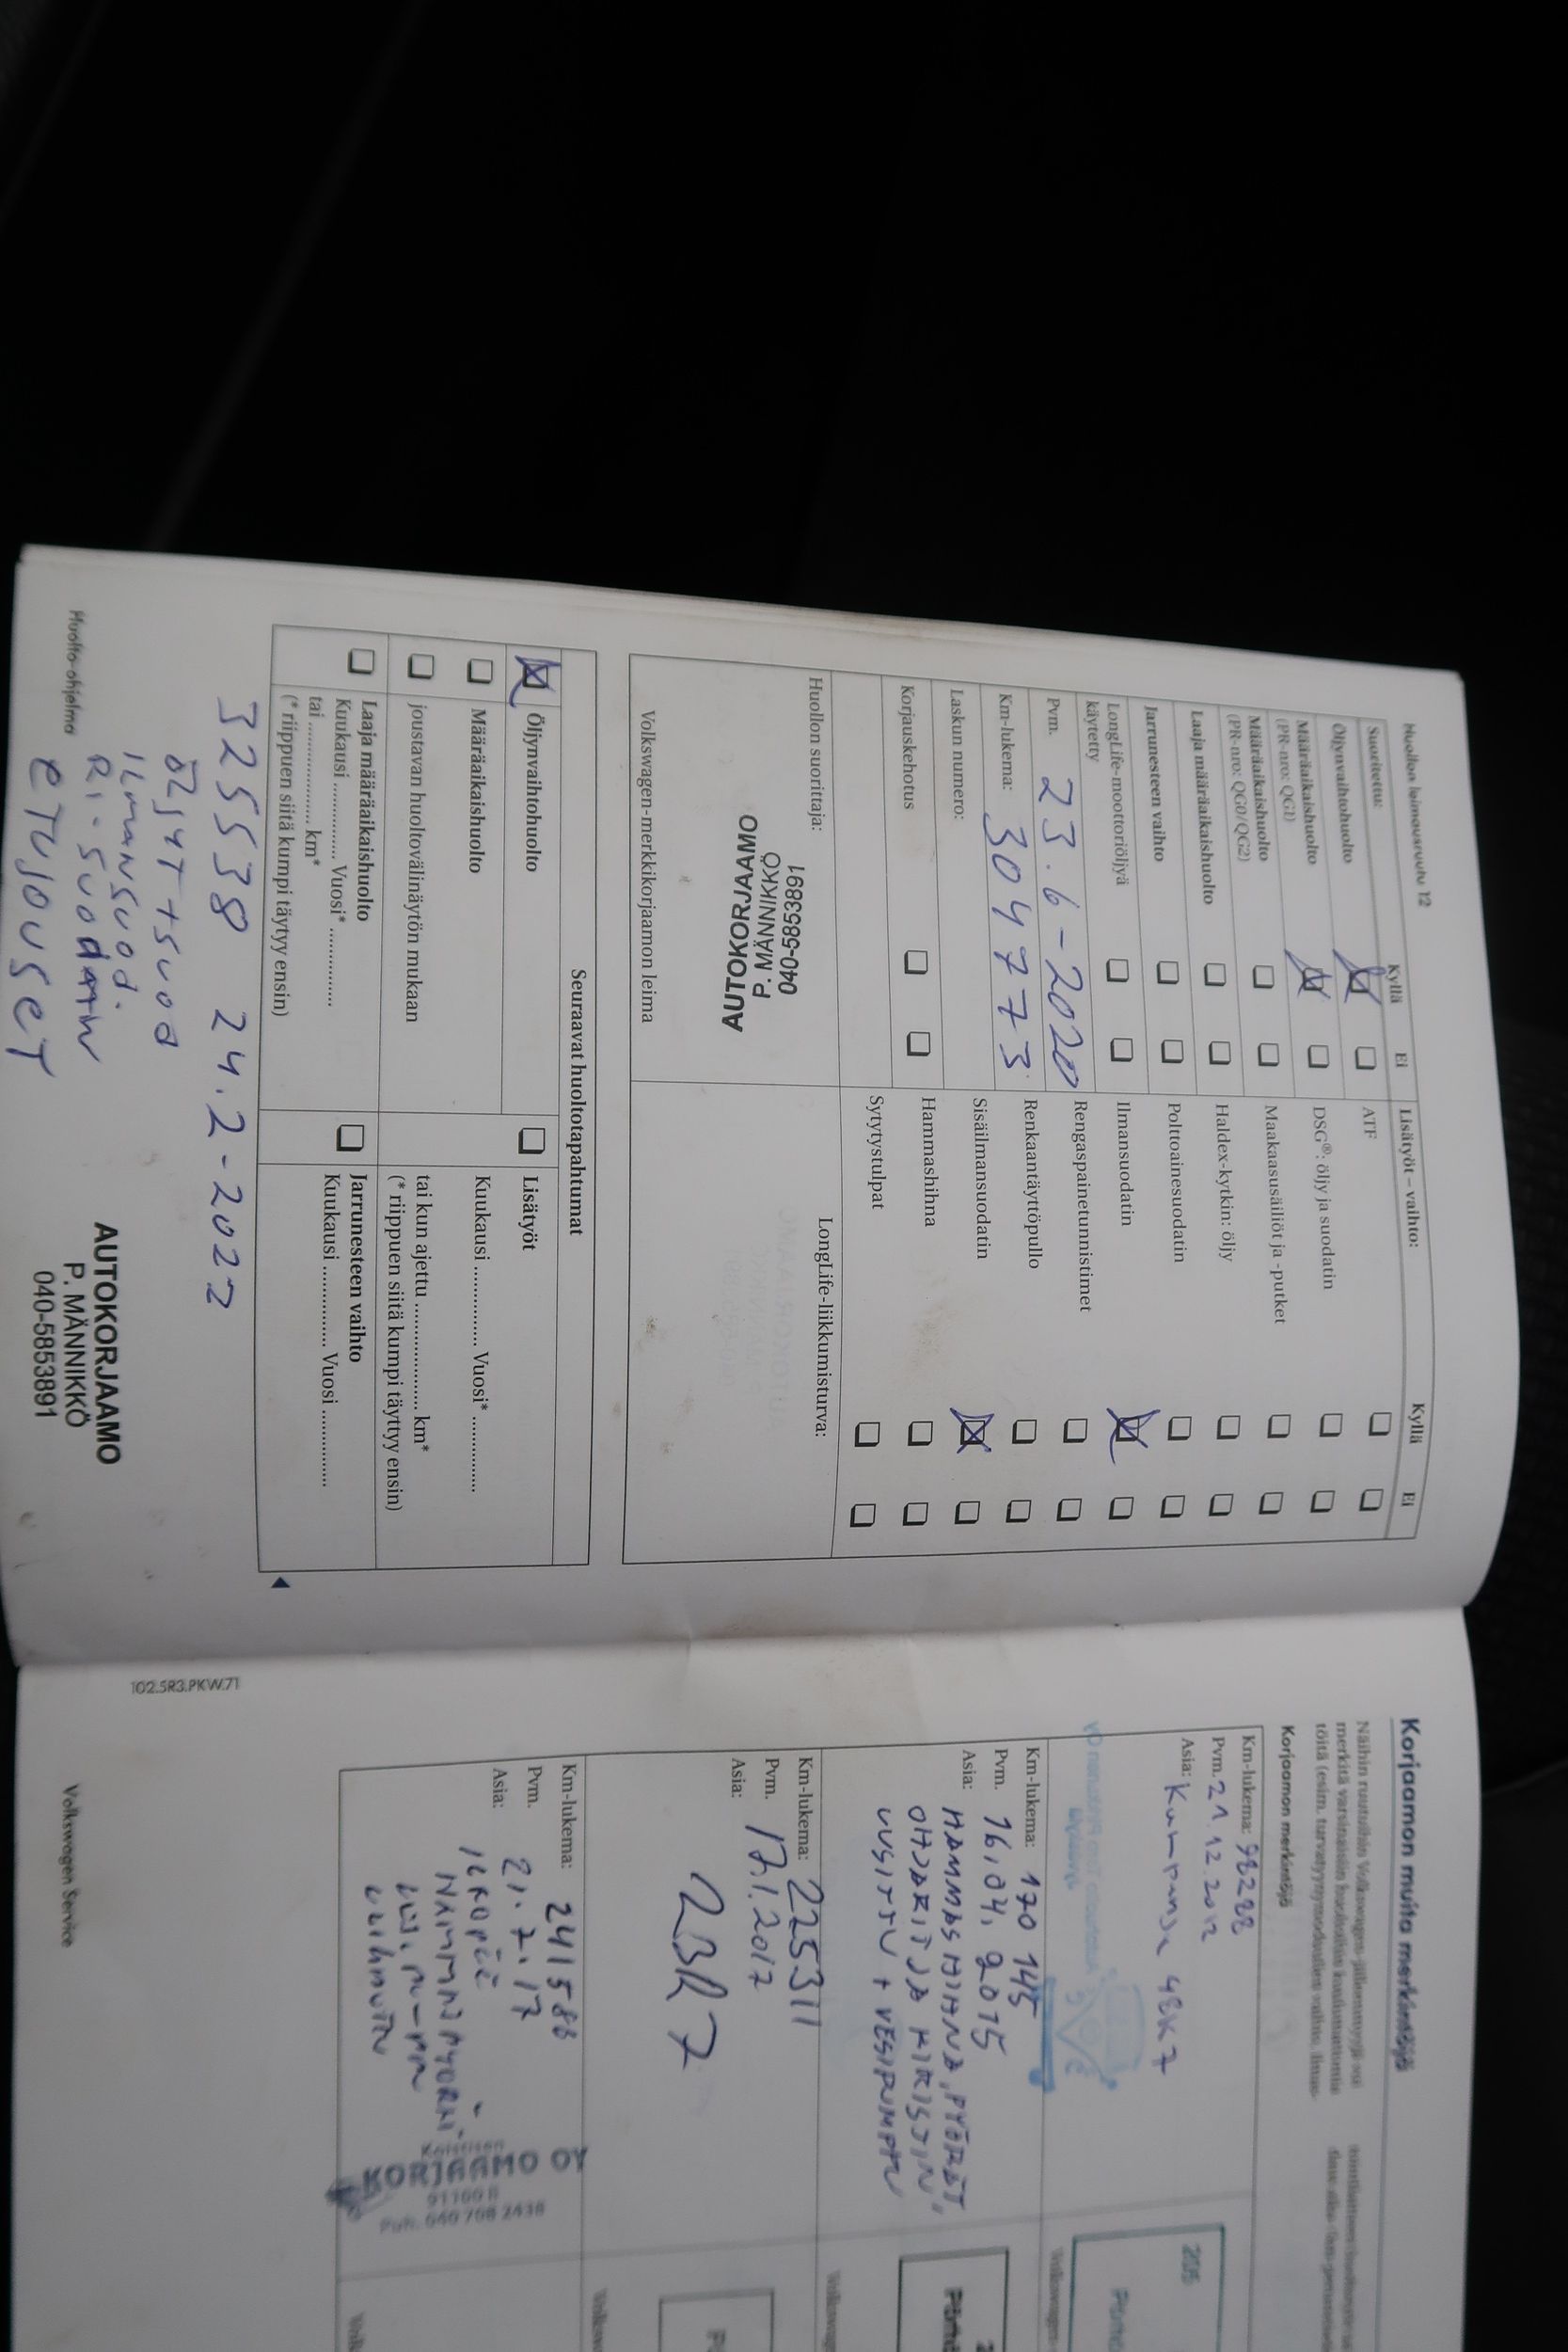 Huollon leimavaruutu 12
Suoritettu: Kyllä Ei
Öljynvaihtohuolto
Määräaikaishuolto
(PR-nro: QG1)
Määräaikaishuolto
(PR-nro: QG0/QG2)
Laaja määräaikaishuolto
Jarrunesteen vaihto
LongLife-moottoriöljyä
käytetty
Pvm. 23.6-2020
Km-lukema: 304773
Laskun numero:
Korjauskehotus
Lisätyöt – vaihto: Kyllä Ei
ATF
DSG®: öljy ja suodatin
Maakaasusäiliöt ja -putket
Haldex-kytkin: öljy
Polttoainesuodatin
Ilmansuodatin
Rengaspainetunnistimet
Renkaantäyttöpullo
Sisäilmansuodatin
Hammashihna
Sytytystulpat
Huollon suorittaja:
AUTOKORJAAMO
P. MÄNNIKKÖ
040-5853891
Volkswagen-merkkikorjaamon leima
LongLife-liikkumisturva:
Seuraavat huoltotapahtumat
Öljynvaihtohuolto
Määräaikaishuolto
joustavan huoltovälinäytön mukaan
Lisätyöt
Kuukausi ............. Vuosi* .............
tai kun ajettu .................. km*
(* riippuen siitä kumpi täytyy ensin)
Laaja määräaikaishuolto
Kuukausi ............. Vuosi* .............
tai .................. km*
(* riippuen siitä kumpi täytyy ensin)
Jarrunesteen vaihto
Kuukausi ............. Vuosi .............
325538 24.2-2022
ÖLJYT + SUOD
ILMANSUOD.
ETUJOUSET
AUTOKORJAAMO
P. MÄNNIKKÖ
040-5853891
Huolto-ohjelma
102.5R3.PKW.71
Korjaamon muita merkintöjä
Näihin ruutuihin Volkswagen-jälleenmyyjä voi
Korjaamon merkintöjä
Km-lukema: 98288
Pvm. 21.12.2012
Asia: Kampanja 48K7
Km-lukema: 170 145
Pvm. 16.04.2015
Asia: HAMMASHIHNA, PYÖRÄT
OHJARIT JA KIRISTIN
UUSITTU + VESIPUMPPU
Km-lukema: 225311
Pvm. 17.1.2017
Asia: 23R7
Km-lukema: 241586
Pvm. 21.7.17
Asia:
KORJAAMO OY
Puh. 040 708 2438
Volkswagen Service